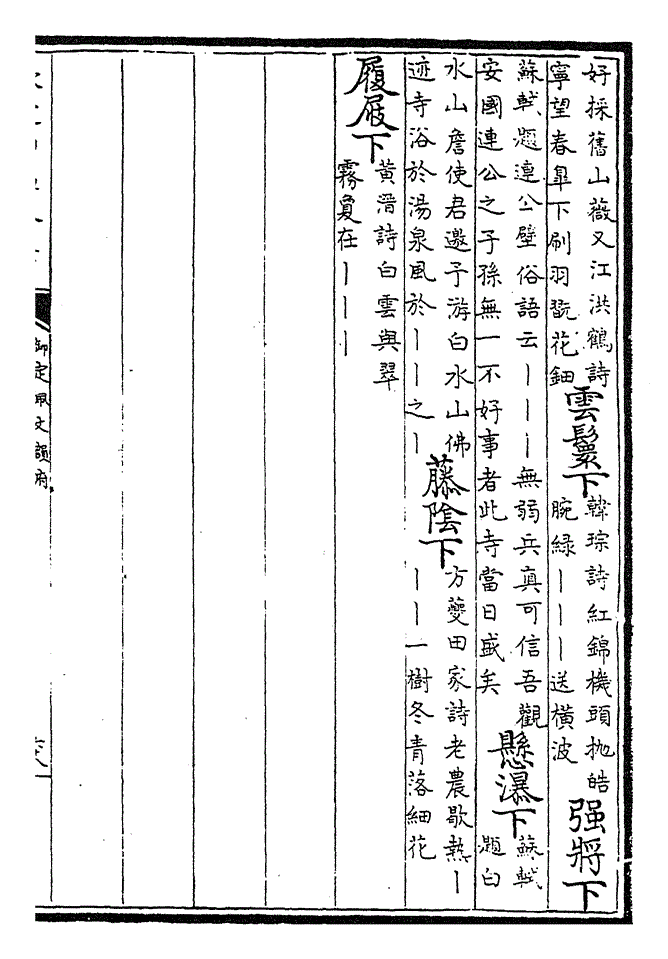 好採舊山薇又江洪鶴詩
寧望春皐下刷羽翫花鈿
雲鬟下
韓琮詩紅錦機頭抛皓
腕綠丨丨丨送横波
强將下
蘇軾題連公壁俗語云丨丨丨無弱兵真可信吾觀
安國連公之子孫無一不好事者此寺當日盛矣
懸瀑下
蘇軾
題白
水山詹使君邀予游白水山佛
迹寺浴於湯泉風於丨丨之丨
藤陰下
方夔田家詩老農歇熱丨
丨丨一樹冬青落細花
履屐下
黃溍詩白雲與翠
霧在丨丨丨
御定佩文韻府